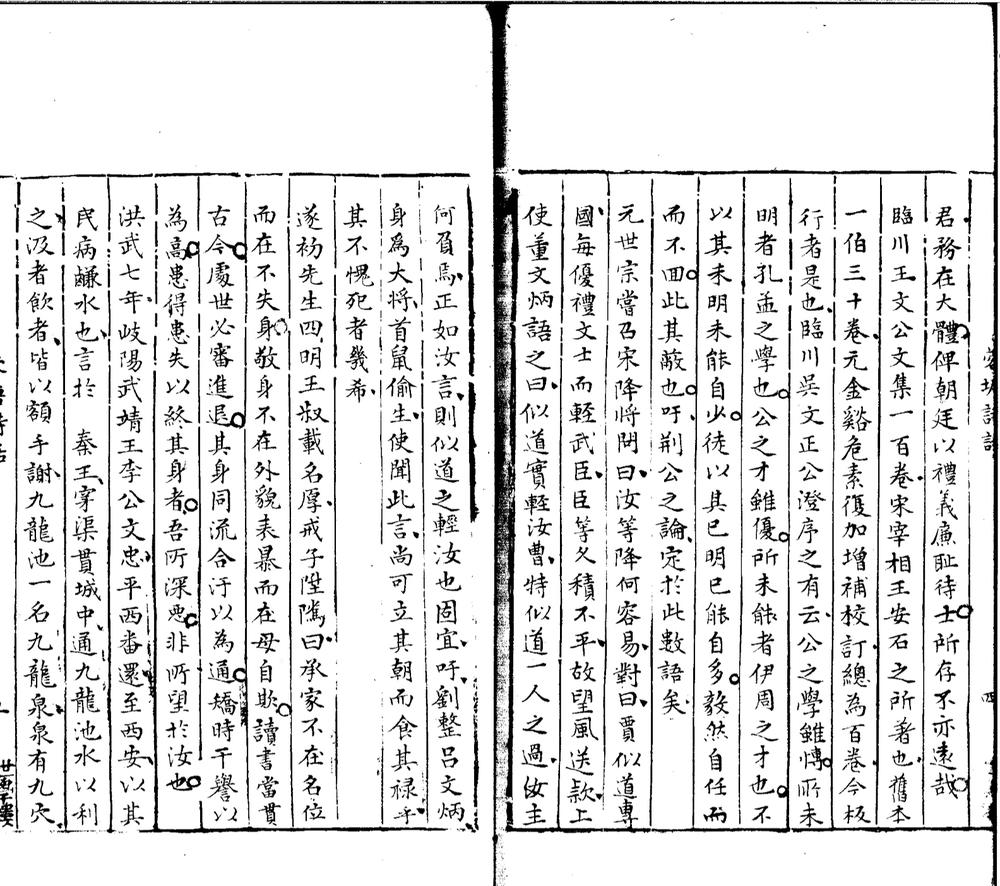 君務在大體俾朝廷以禮義廉耻待士所存不亦遠哉
臨川王文公文集一百卷宋宰相王安石之所著也舊本
一伯三十卷元金谿危素復加增補校訂總為百卷今板
行者是也臨川吳文正公澄序之有云公之學雖博所未
明者孔孟之學也公之才雖優所未能者伊周之才也不
以其未明未能自少徒以其已明已能自多毅然自任而
而不回此其蔽也吁荆公之論定於此數語矣
元世宗嘗召宋降將問曰汝等降何容易對曰賈似道專
國每優禮文士而輕武臣臣等久積不平故望風送款上
使董文炳語之曰似道實輕汝曹特似道一人之過汝主
何負焉正如汝言則似道之輕汝也固宜吁劉整吕文炳
身為大將首鼠偷生使聞此言尚可立其朝而食其禄乎
其不愧死者幾希
遂初先生四明王叔載名厚戒子陞隲曰承家不在名位
而在不失身敬身不在外貌表暴而在母自欺讀書當貫
古今處世必審進退其身同流合汙以為通矯時干譽以
為高患得患失以終其身者吾所深惡非所望於汝也
洪武七年岐陽武靖王李公文忠平西番還至西安以其
民病鹻水也言於　秦王穿渠貫城中通九龍池水以利
之汲者飲者皆以額手謝九龍池一名九龍泉泉有九穴